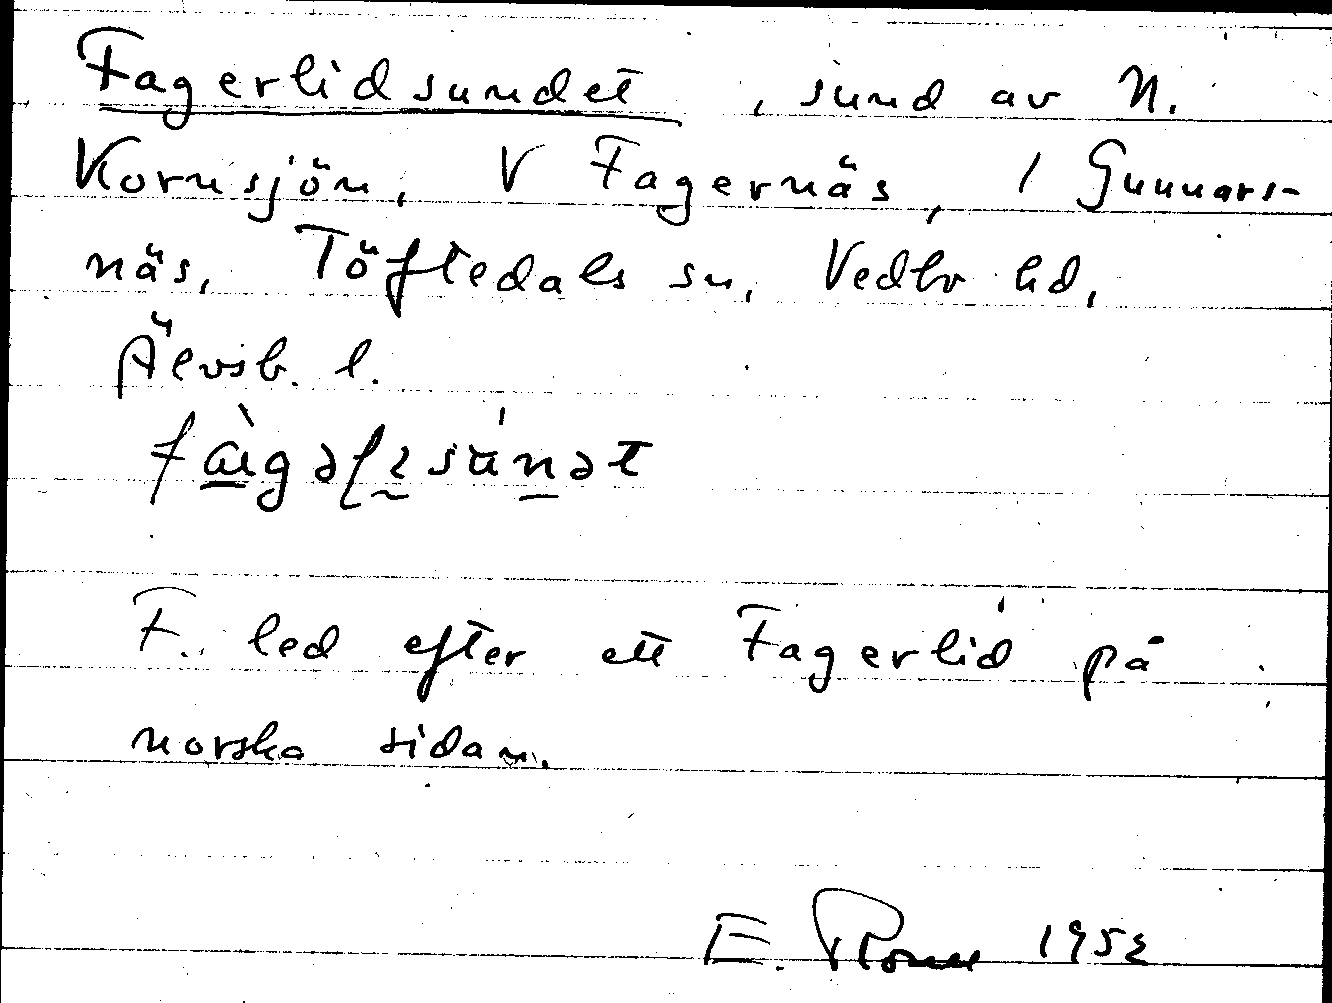 Fagerlidsundet, sund av N.
Kornsjön, V Fagernäs, 1 Gunnars-
näs, Töftedals sn, Vedbo hd,
Älvsb. l.
F. led efter ett Fagerlid på
norska sidan.
E. 1952